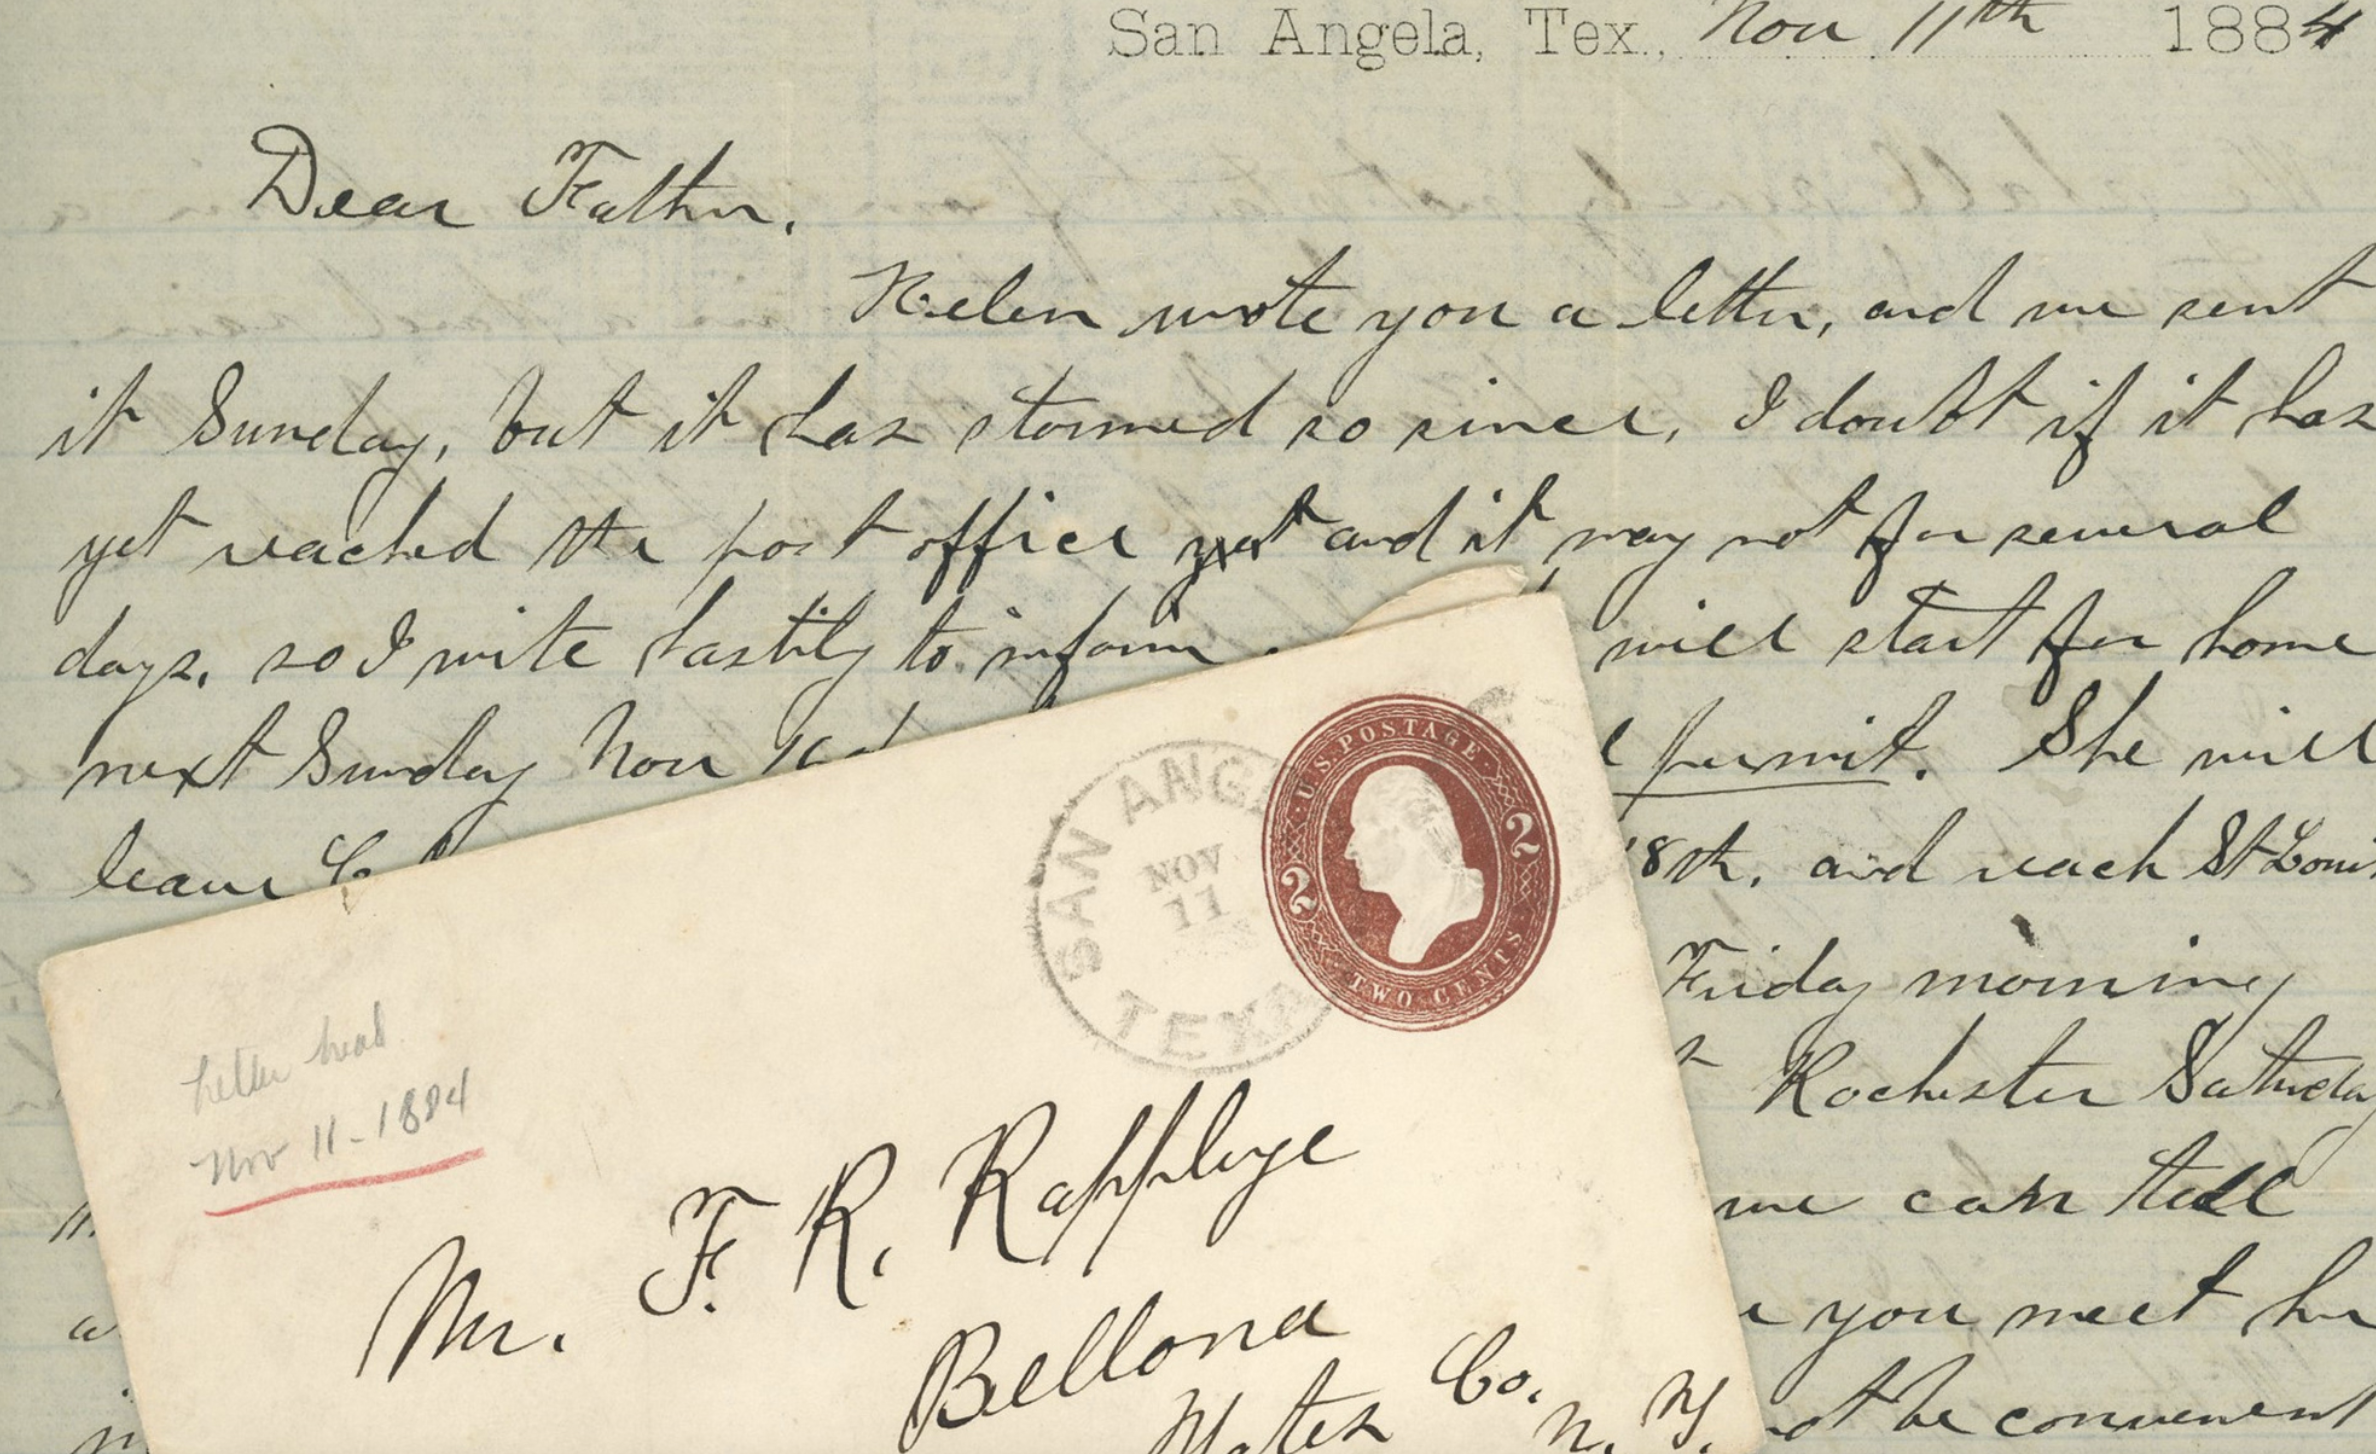 San Angela, Tex., Nov 11th 1884
Dear Father.
Helen wrote you a letter, and we sent
it Sunday, but it has stormed so since, I doubt if it has
yet reached the post office yet and it may not for several
days. so I write hastily to inform will start for home
next Sunday Nov permit. She will
leave 18th. and reach St Louis
Friday morning
Rochester Saturday
we can tell
you meet her
not be convenient
SAN ANGE
NOV
11
TEXA
U.S. POSTAGE
2 2
TWO CENTS
Letter head
Nov 11-1884
Mr. F. R. Rappleye
Bellona
Yates Co.
N. Y.